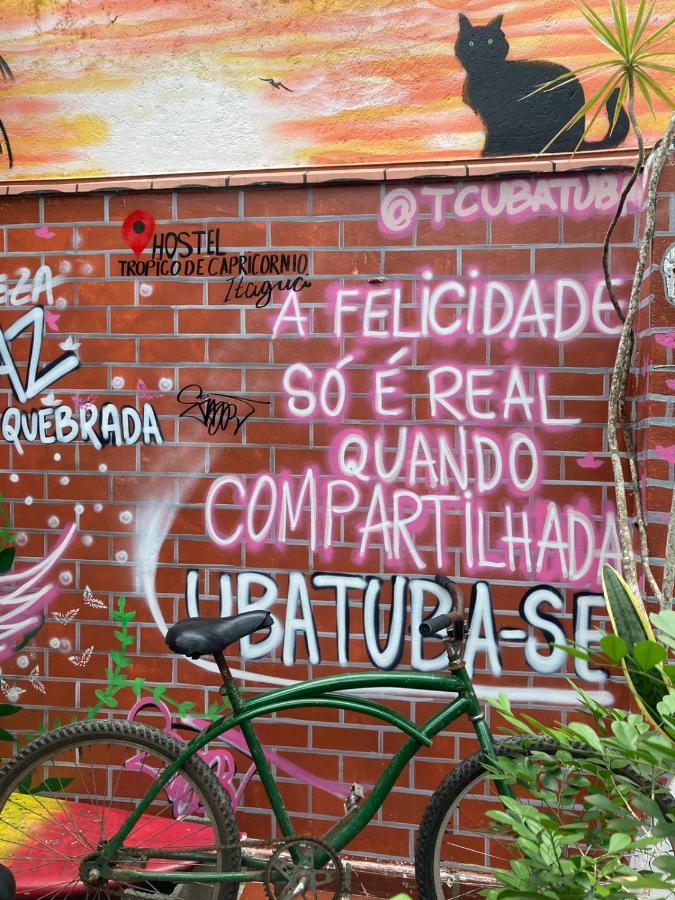 @TCUBATUBA
HOSTEL
TROPICO DE CAPRICORNIO
Itaguá
A FELICIDADE
SÓ É REAL
QUANDO
COMPARTILHADA
UBATUBA-SE
QUEBRADA